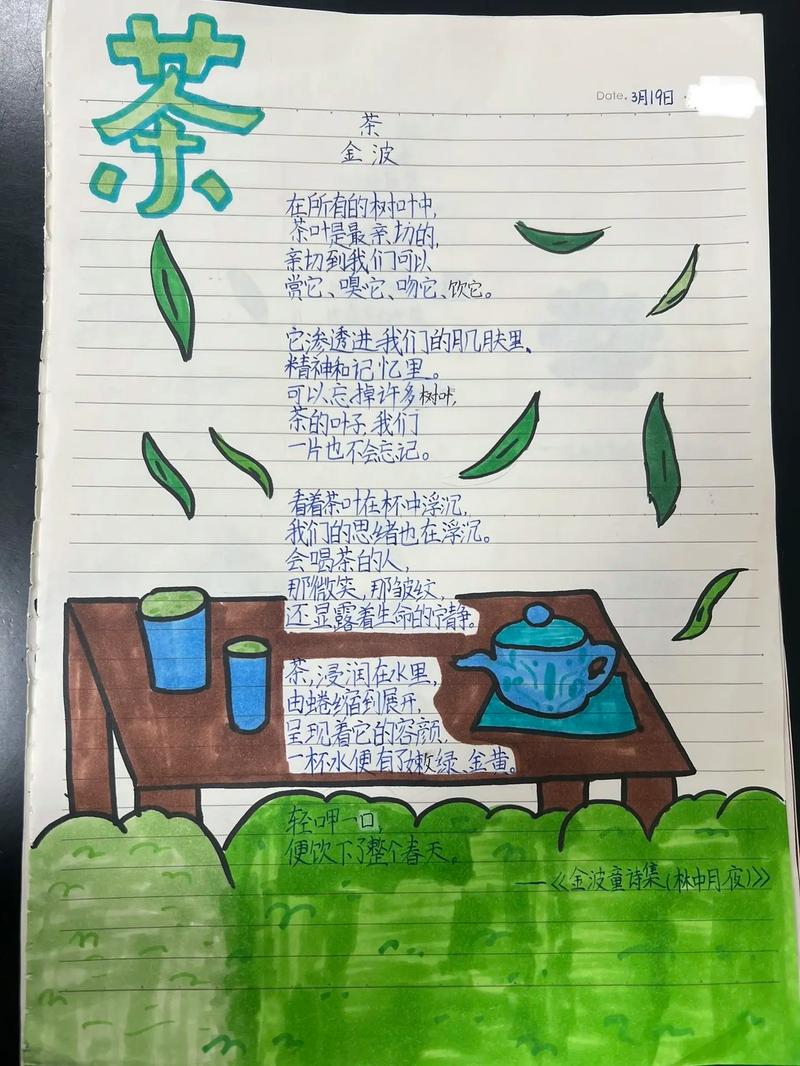 茶
Date. 3月19日
茶
金波
在所有的树叶中,
茶叶是最亲切的,
亲切到我们可以
赏它、嗅它、吻它、饮它。
它渗透进我们的肌肤里、
精神和记忆里。
可以忘掉许多树叶,
茶的叶子,我们
一片也不会忘记。
看着茶叶在杯中浮沉,
我们的思绪也在浮沉。
会喝茶的人,
那微笑,那皱纹,
还显露着生命的宁静。
茶,浸润在水里,
由蜷缩到展开,
呈现着它的容颜,
一杯水便有了嫩绿、金黄。
轻呷一口,
便饮下了整个春天。
——《金波童诗集(林中月夜)》